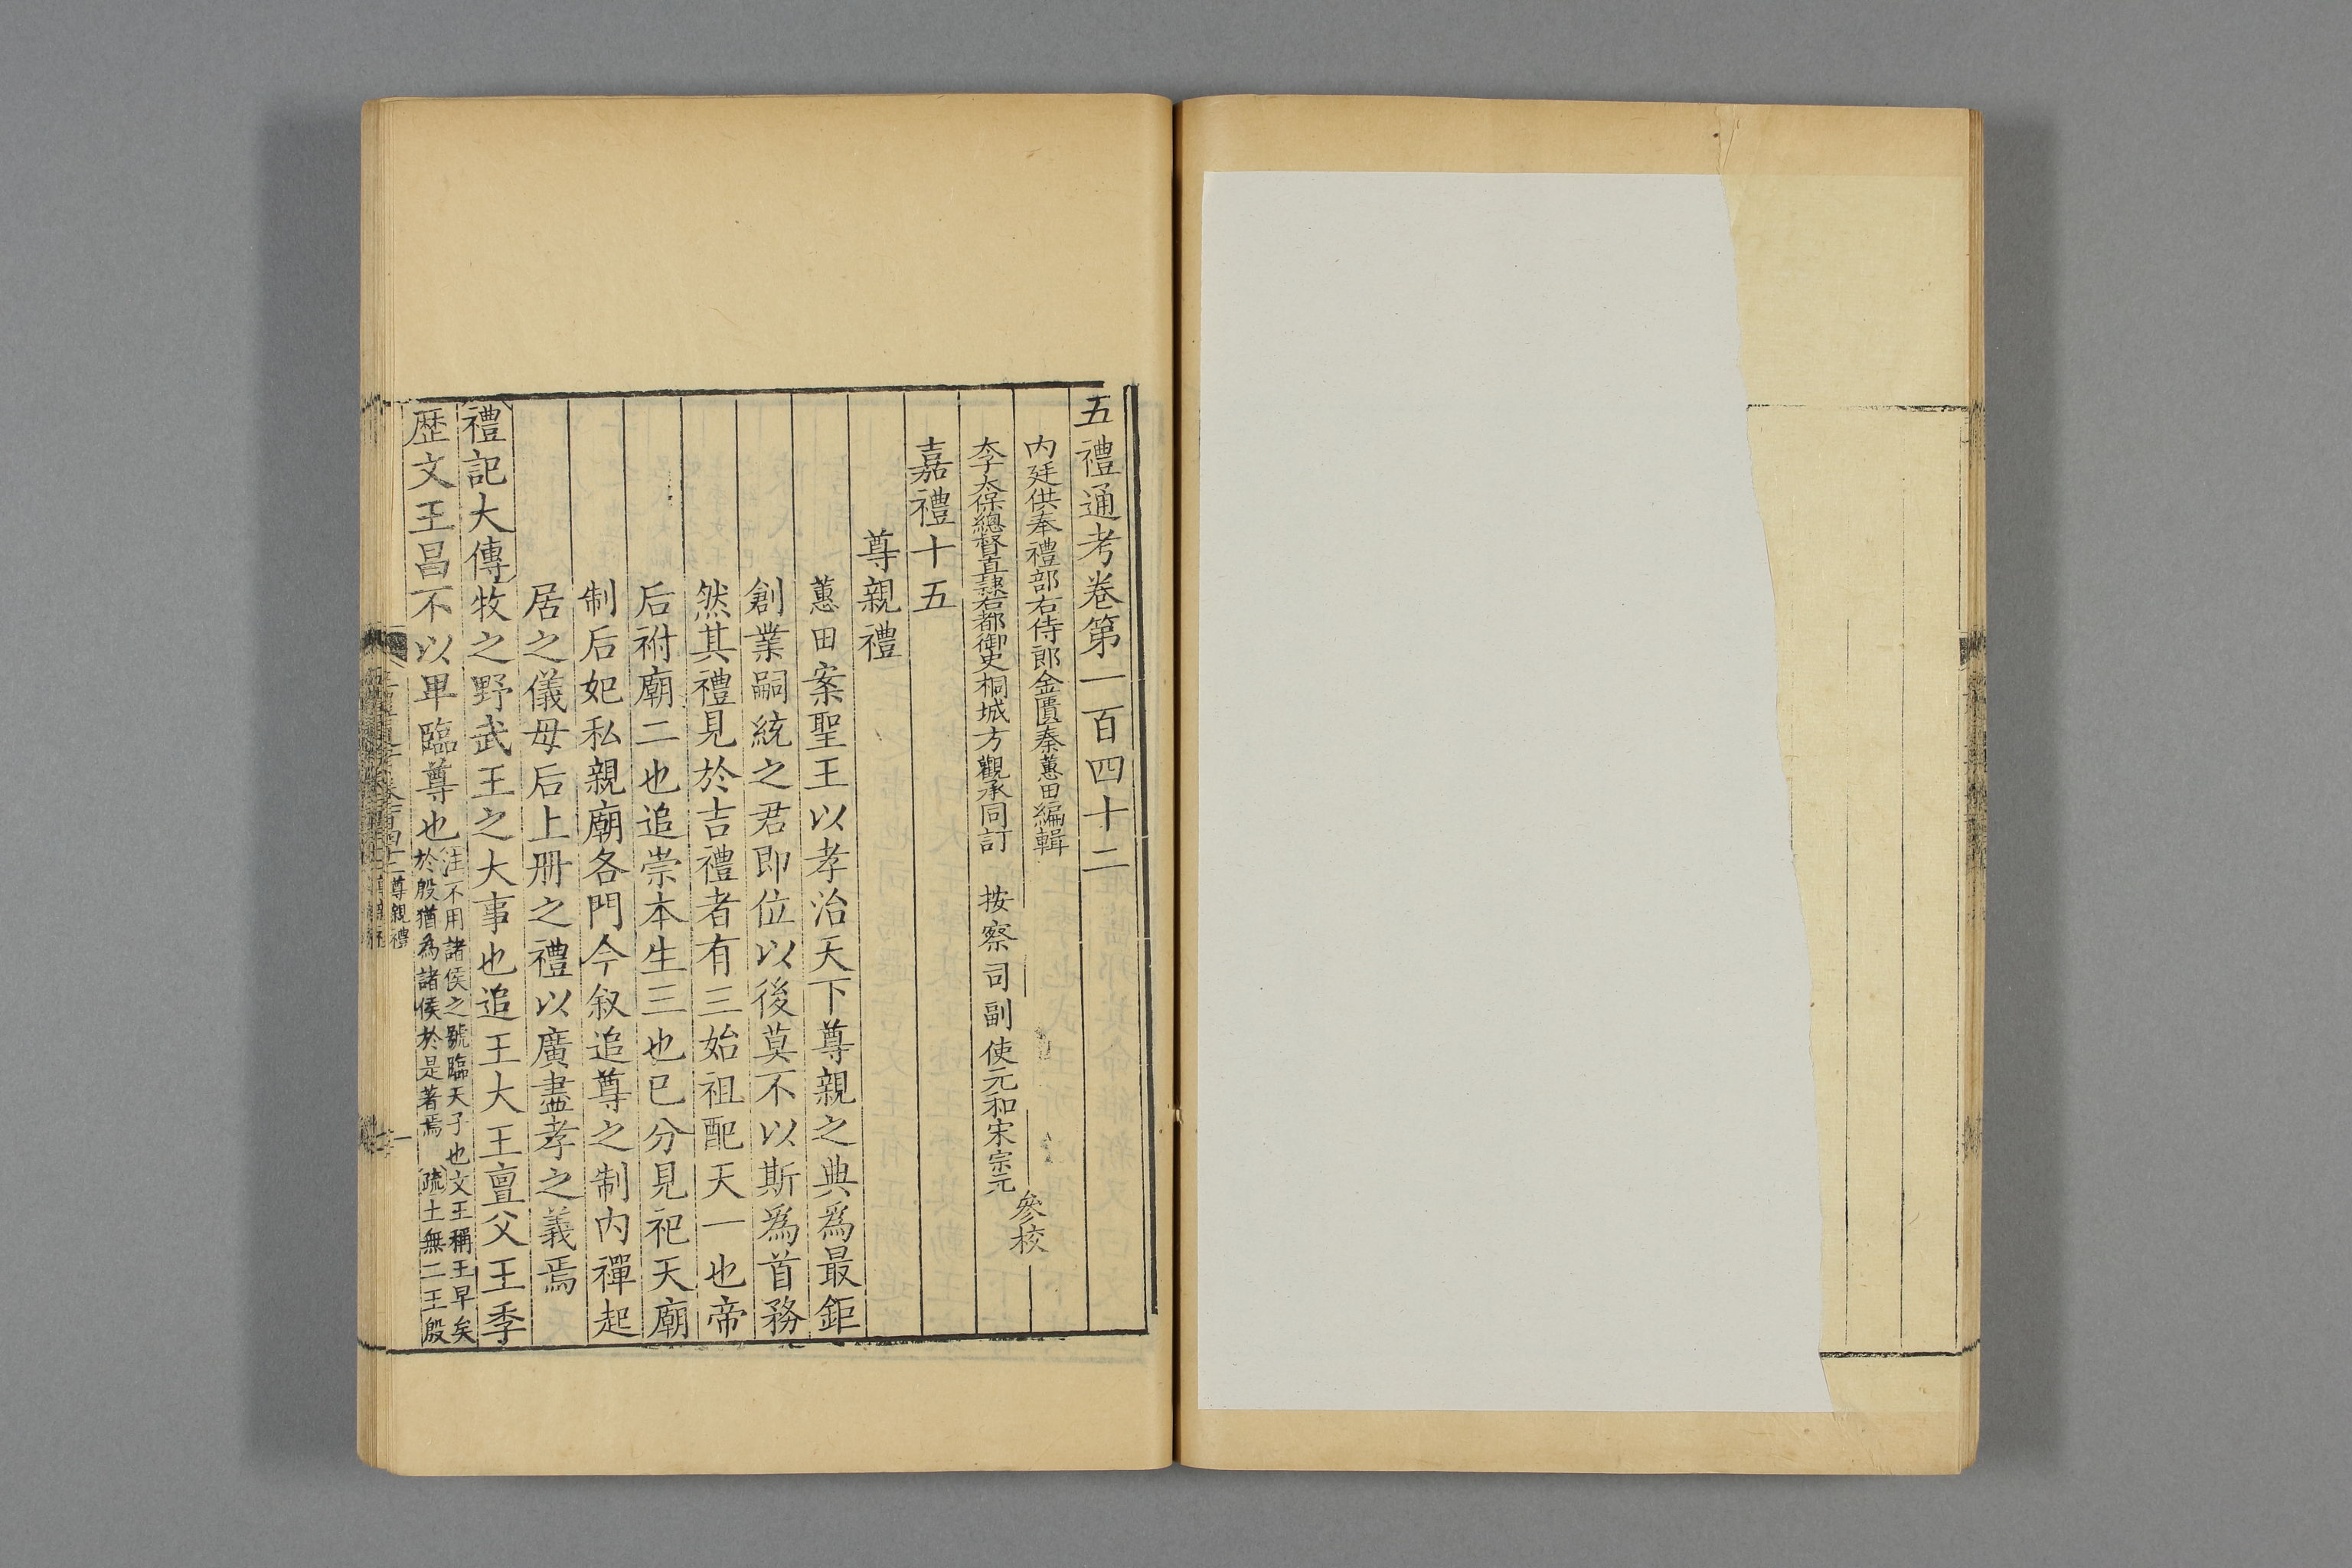 五禮通考卷第一百四十二
内廷供奉禮部右侍郎金匱秦蕙田編輯
太子太保總督直隸右都御史桐城方觀承同訂
按察司副使元和宋宗元
參校
嘉禮十五
尊親禮
蕙田案聖王以孝治天下尊親之典爲最鉅
創業嗣統之君即位以後莫不以斯爲首務
然其禮見於吉禮者有三始祖配天一也帝
后祔廟二也追崇本生三也已分見祀天廟
制后妃私親廟各門今叙追尊之制内禪起
居之儀母后上冊之禮以廣盡孝之義焉
禮記大傳牧之野武王之大事也追王大王亶父王季
歴文王昌不以卑臨尊也
注不用諸侯之號臨天子也文王稱王早矣
於殷猶為諸侯於是著焉 疏土無二王殷
尊親禮
一